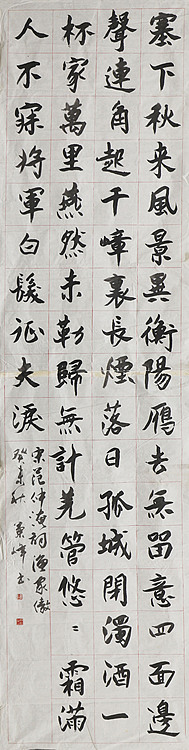 塞下秋来風景異衡陽鴈去無留意四面邊
聲連角起千嶂裏長煙落日孤城閉濁酒一
杯家萬里燕然未勒歸無計羌管悠〻霜滿
人不寐將軍白髮征夫淚
宋范仲淹詞漁家傲
癸未秋 景峰书